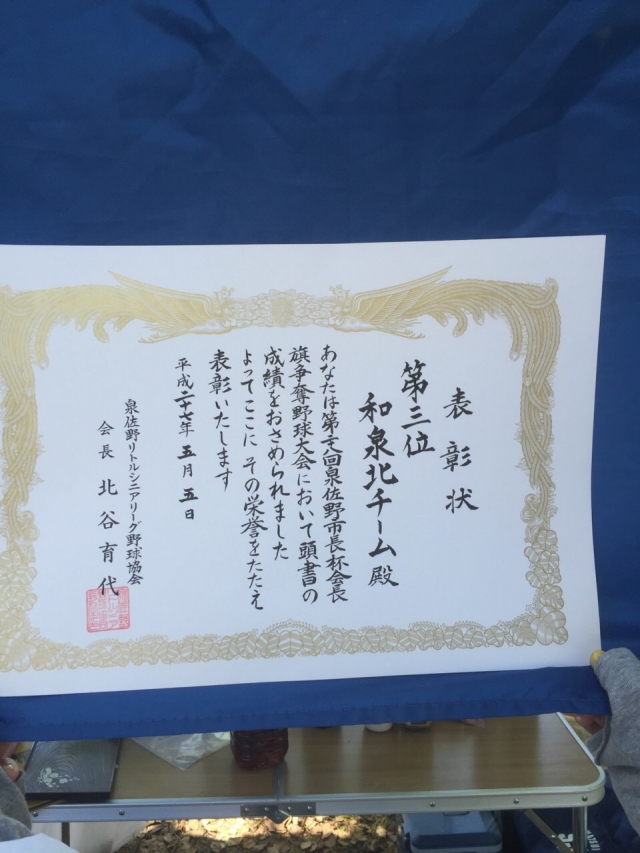 表彰状
第三位
和泉北チーム殿
あなたは第十八回泉佐野市長杯会長
旗争奪野球大会において頭書の
成績をおさめられました
よってここにその栄誉をたたえ
表彰いたします
平成二十七年五月五日
泉佐野リトルシニアリーグ野球協会
会長 北谷育代